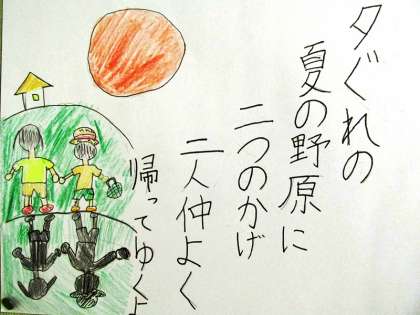 夕ぐれの
夏の野原に
二つのかげ
二人仲よく
帰ってゆくよ